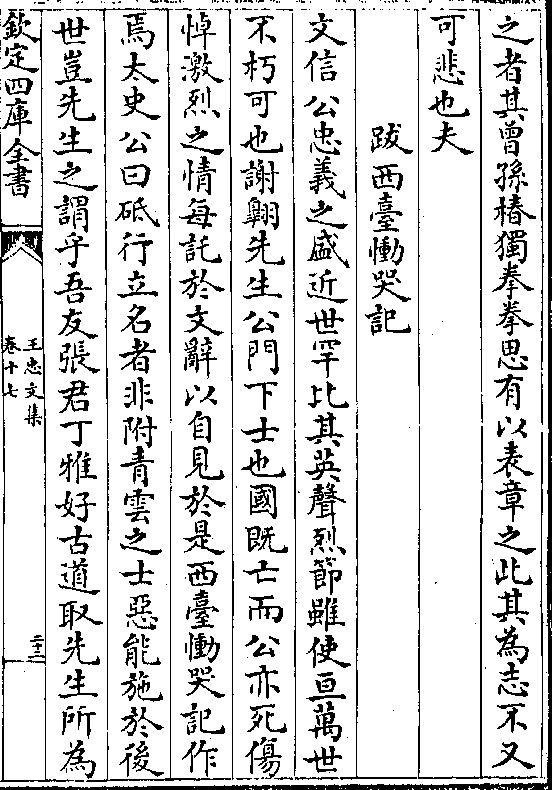 之者其曾孫椿獨拳拳思有以表章之此其為志不又
可悲也夫
跋西臺慟哭記
文信公忠義之盛近世罕比其英聲烈節雖使亘萬世
不朽可也謝翺先生公門下士也國既亡而公亦死傷
悼激烈之情每託於文辭以自見於是西臺慟哭記作
焉太史公曰砥行立名者非附青雲之士惡能施於後
世豈先生之謂乎吾友張君丁雅好古道取先生所為
欽定四庫全書
王忠文集
卷十七
二十二